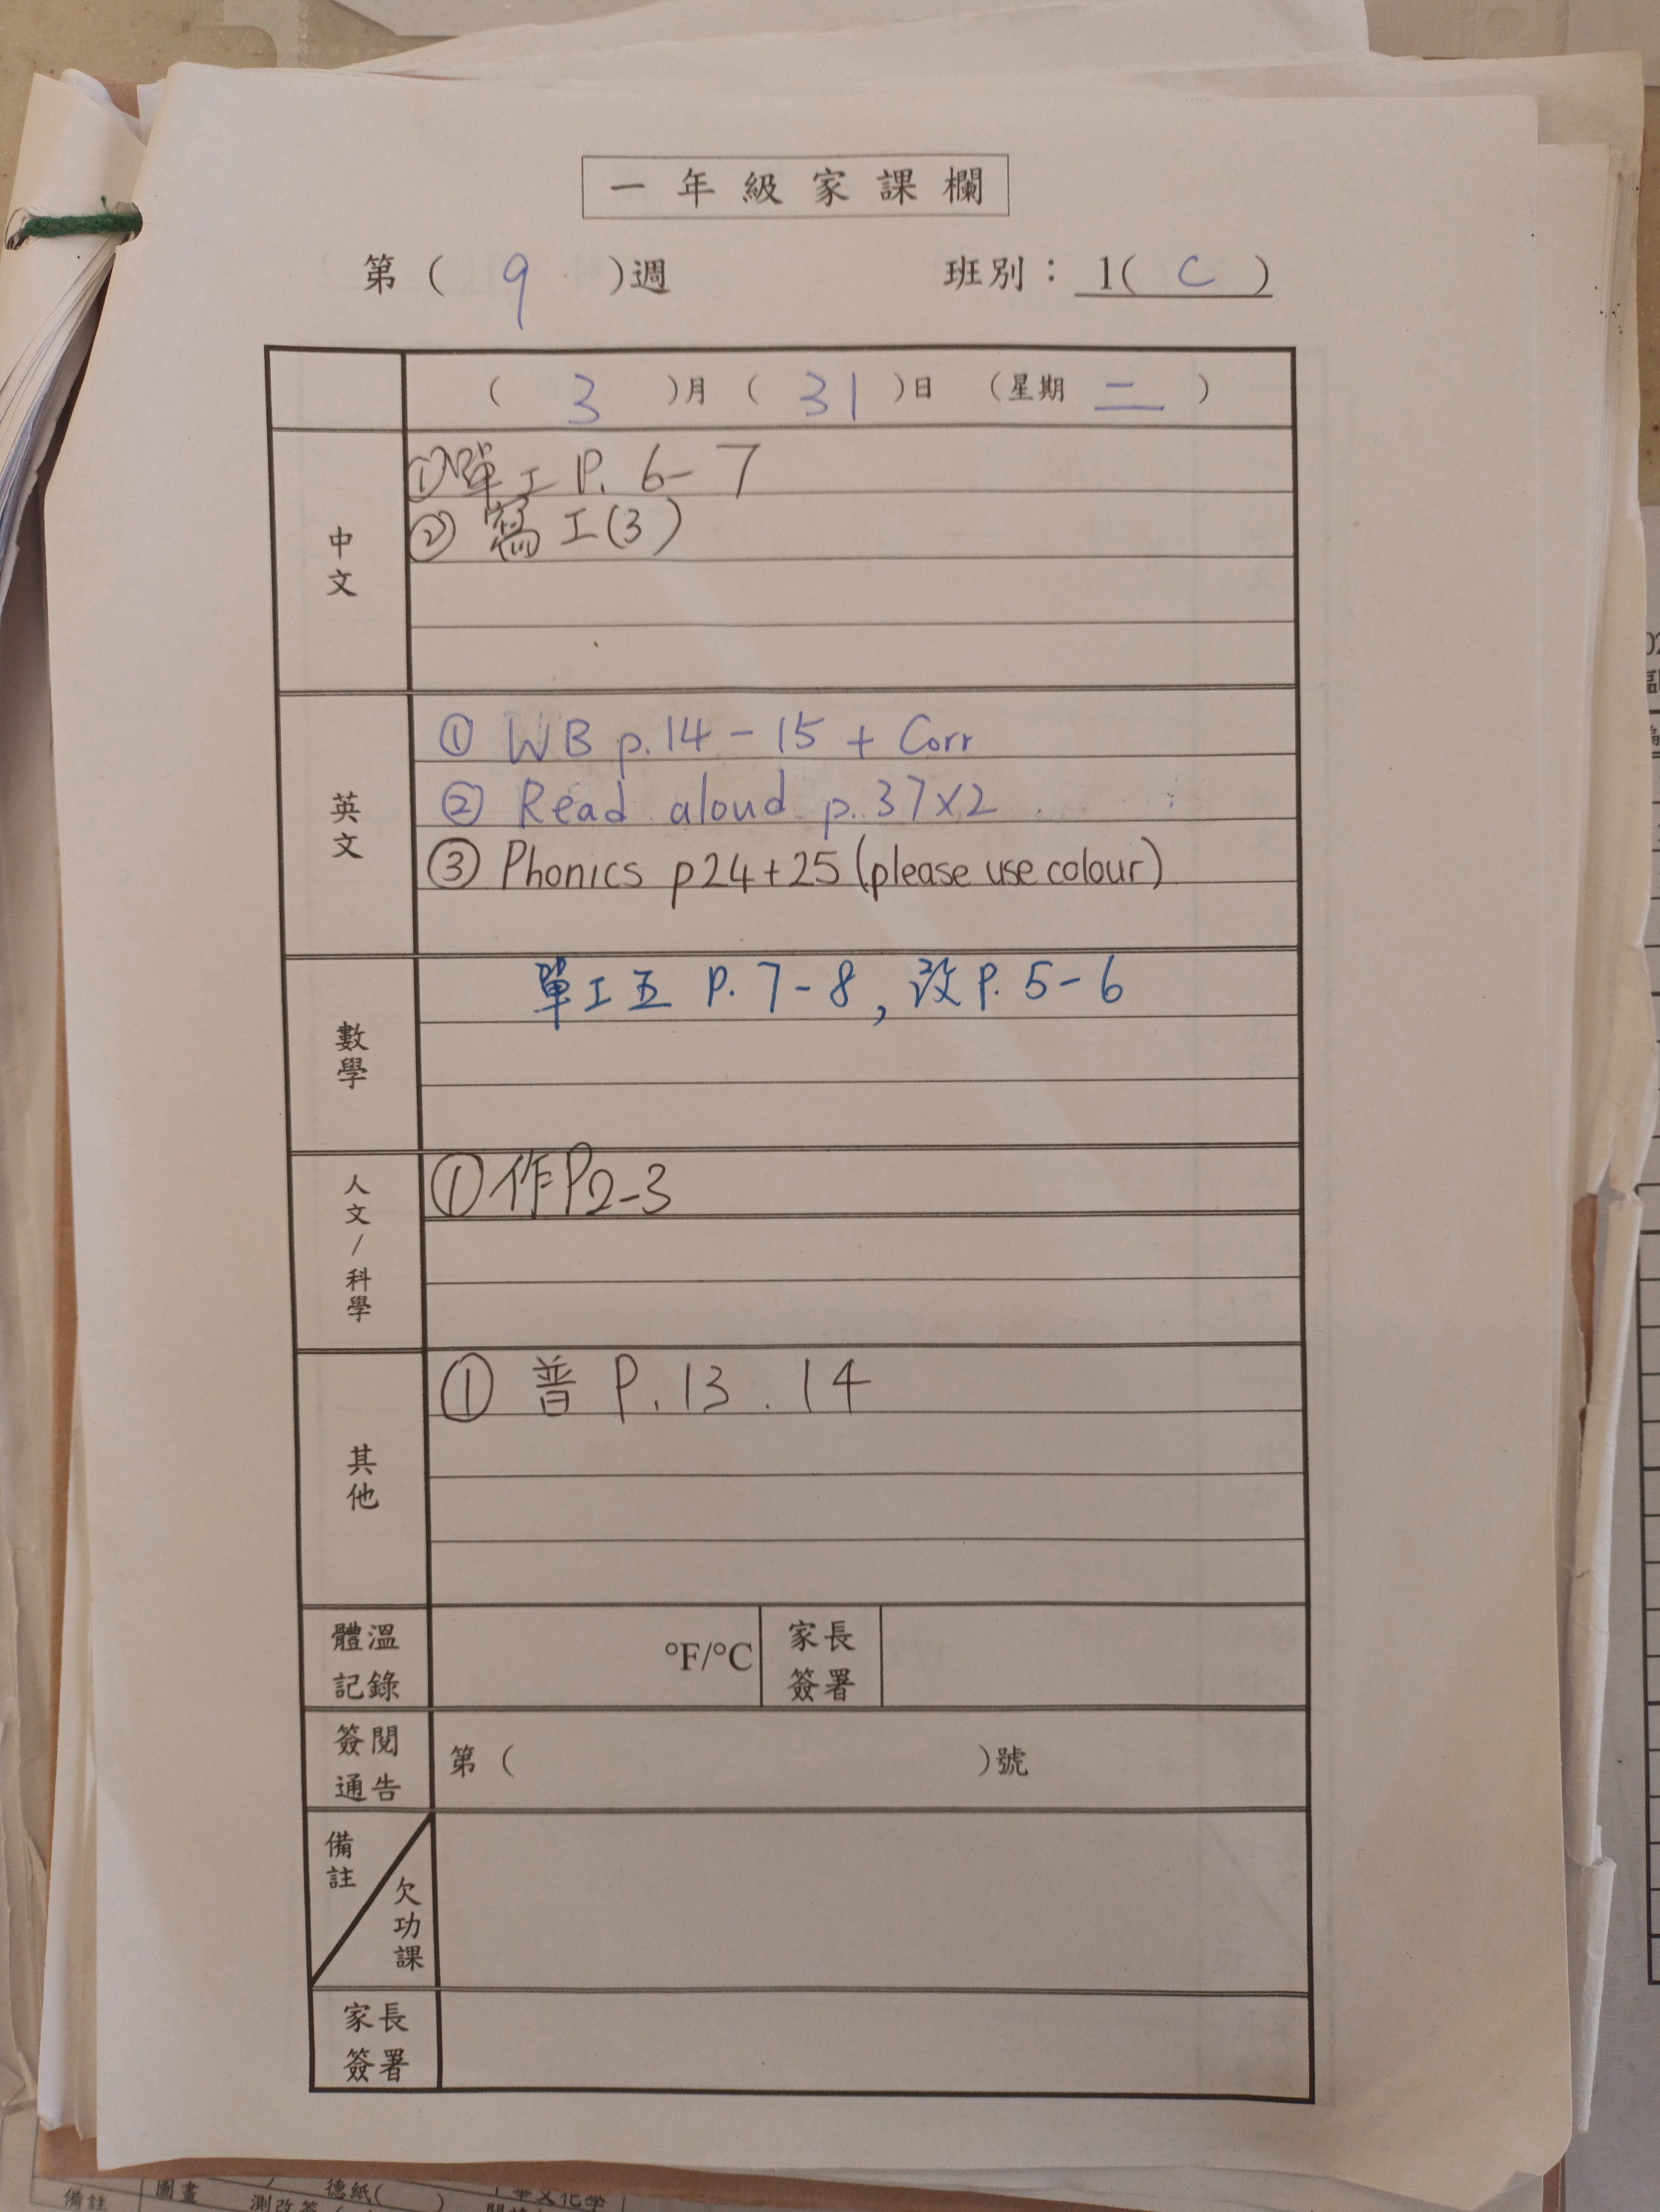 一年級家課欄
第（ 9 ）週 班別：1( C )
（ 3 ）月（ 31 ）日（星期 二 ）
中文
①單工 P. 6-7
② 寫工(3)
英文
① WB p.14 - 15 + Corr
② Read aloud p.37×2
③ Phonics p24+25 (please use colour)
數學
單工五 P. 7-8, 改 P. 5-6
人文/科學
①作P2-3
其他
① 普 P. 13 . 14
體溫記錄 °F/°C 家長簽署
簽閱通告 第（ ）號
備註 欠功課
家長簽署
備註 圖畫 德紙(